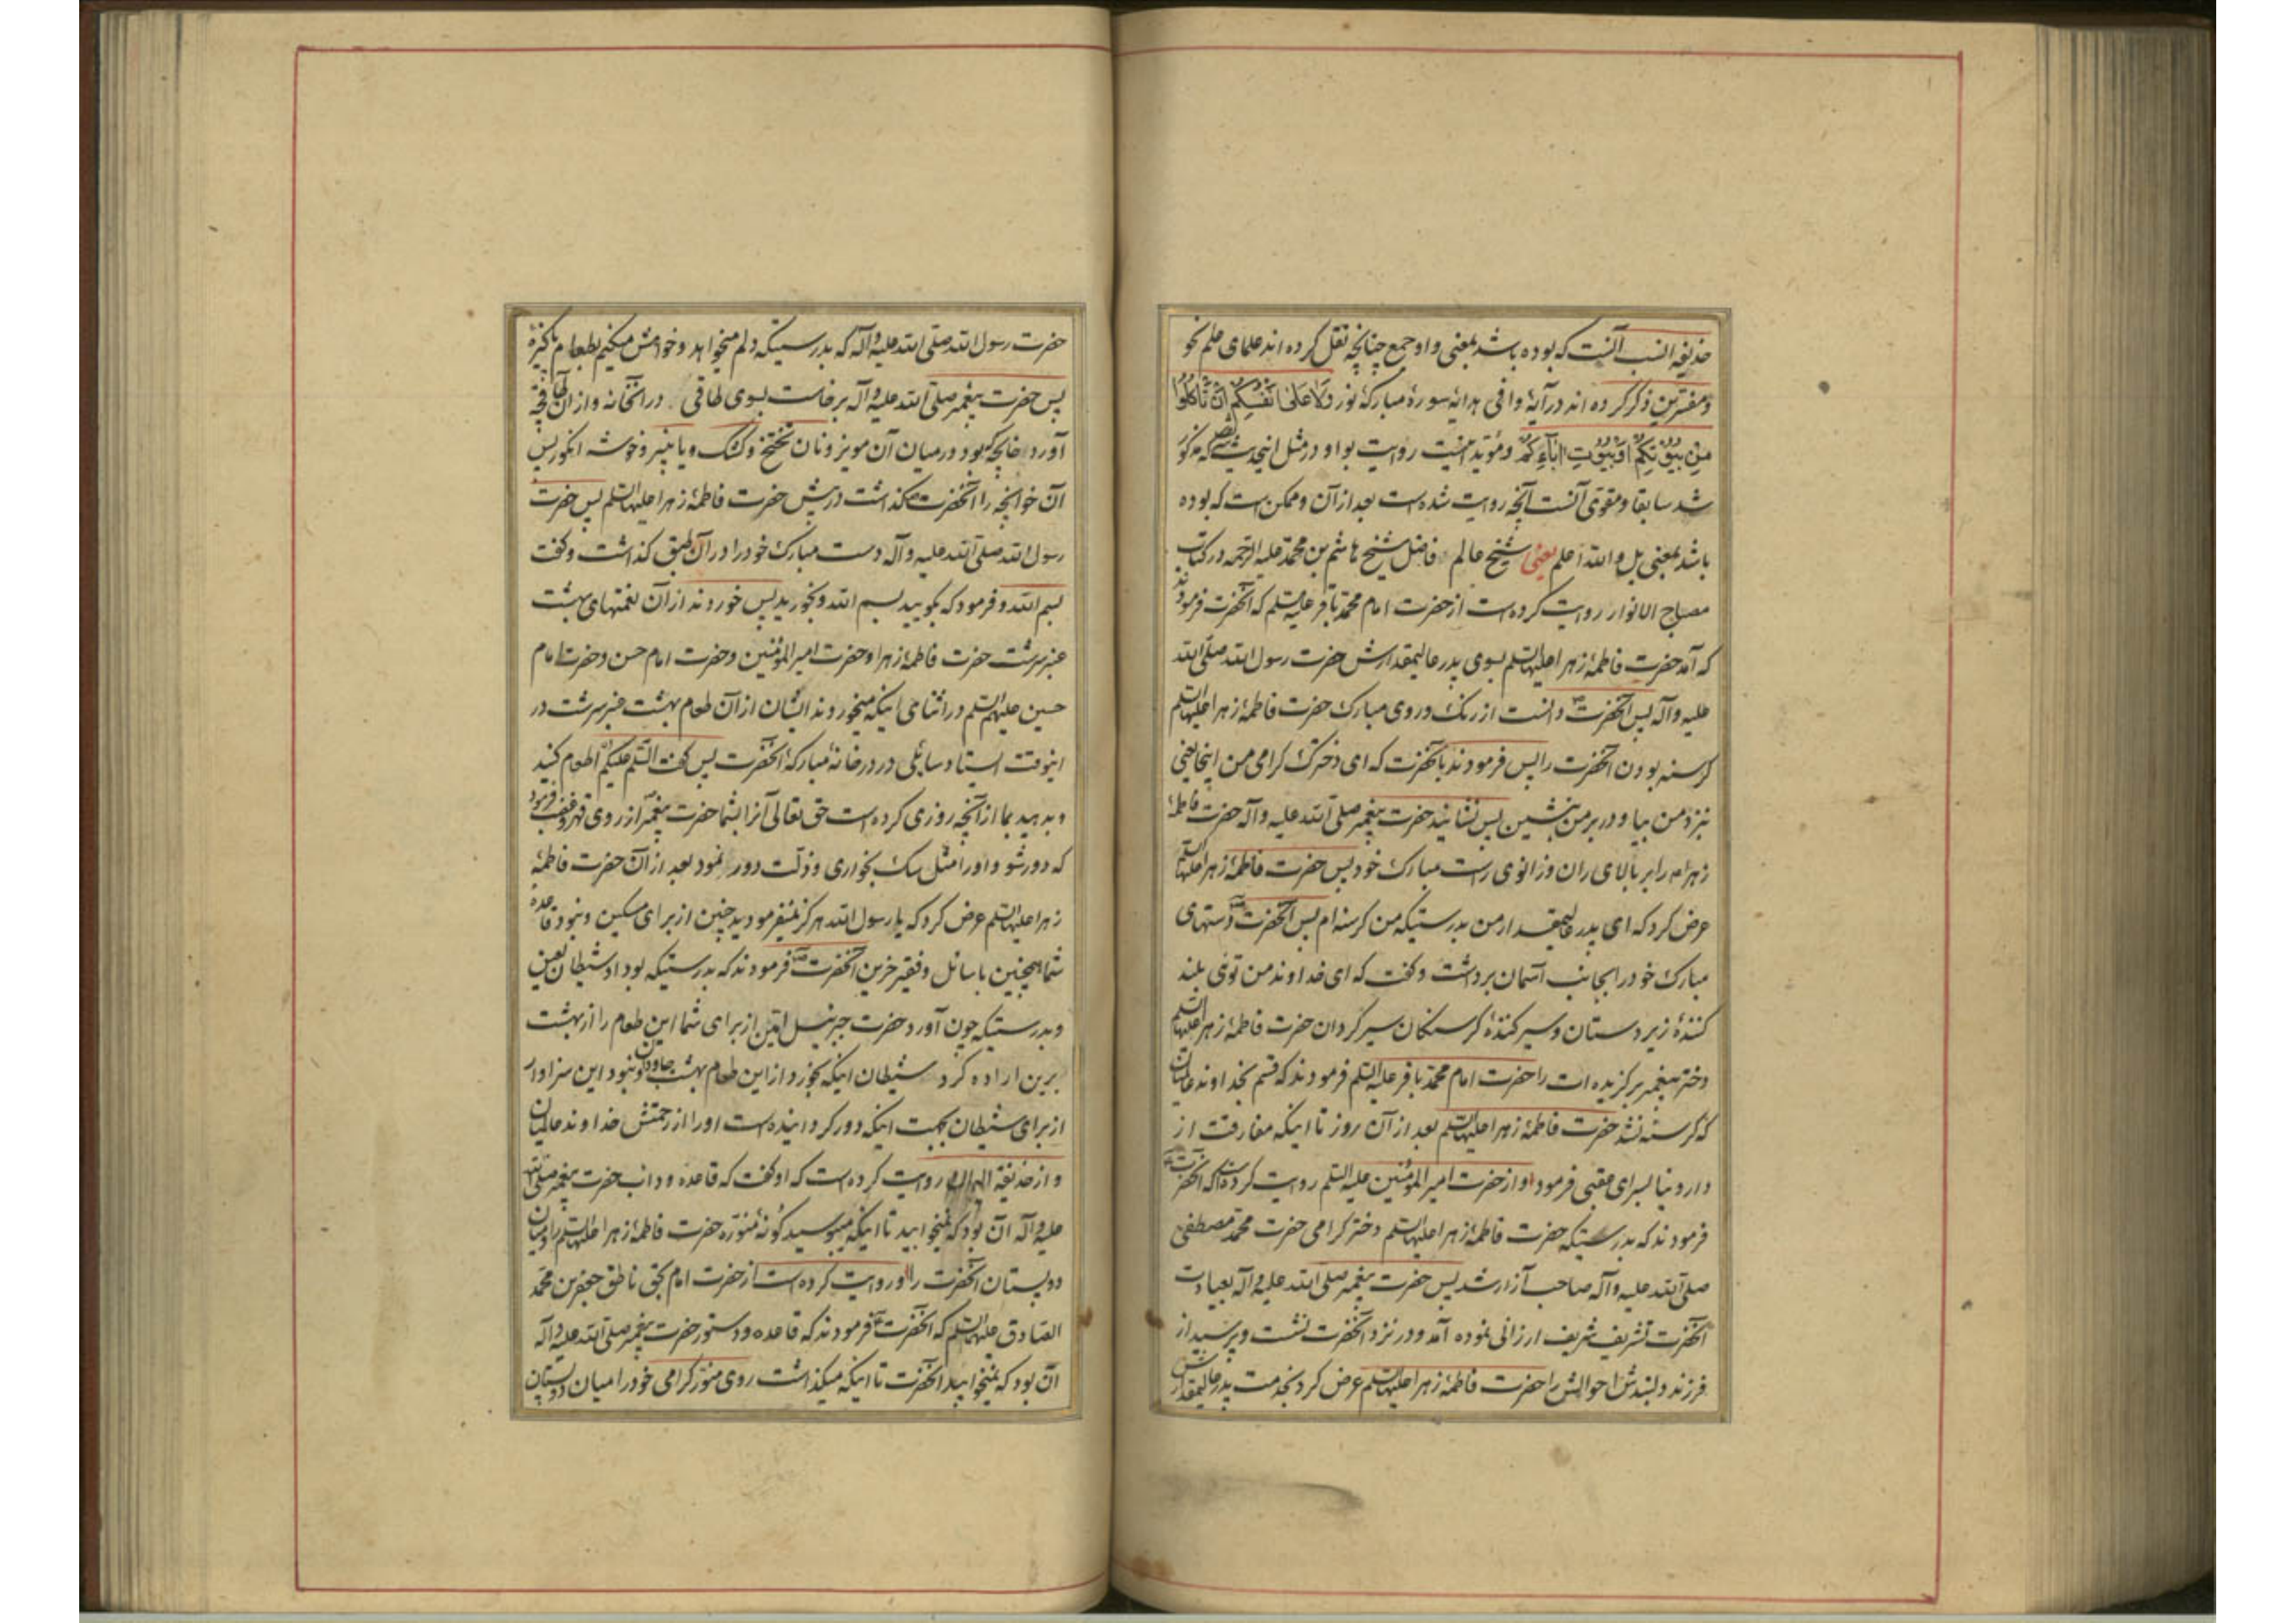 حذیفه انسب آنست که بوده باشد بمعنی واو جمع چنانچه نقل کرده اند علمای علم نحو
و مفسرین ذکر کرده اند در آیهٔ وافی هدایهٔ سورهٔ مبارکهٔ نور وَلاٰ عَلیٰ اَنْفُسِکُمْ اَنْ تَأْکُلُوا
مِنْ بُیُوتِکُمْ اَوْ بُیُوتِ اٰبٰآءِکُمْ و مؤید روایت بواو در مثل که مذکور
شد سابقا و مقوی آنست آنچه روایت شده است بعد از آن و ممکن است که بوده
باشد بمعنی بل و الله اعلم یعنی شیخ عالم فاضل شیخ هاشم بن محمد علیه الرحمه در کتاب
مصباح الانوار روایت کرده است از حضرت امام محمد باقر علیه السلم که آنحضرت فرمودند
که آمد حضرت فاطمهٔ زهرا علیها السلم بسوی پدر عالیمقدارش حضرت رسول الله صلی الله
علیه و آله پس آنحضرت دانست از رنک و روی مبارک حضرت فاطمهٔ زهرا علیها السلم
کرسنه بودن آنحضرت را پس فرمودند بآنحضرت که ای دخترک کرامی من اینجا یعنی
نزد من بیا و در بر من بنشین پس نشانید حضرت پیغمبر صلی الله علیه و آله حضرت فاطمهٔ
زهرا را بر بالای ران و زانوی راست مبارک خود پس حضرت فاطمهٔ زهرا علیها السلم
عرض کرد که ای پدر عالیمقدار من بدرستیکه من کرسنه ام پس آنحضرت دستهای
مبارک خود را بجانب آسمان برداشت و کفت که ای خداوند من توئی بلند
کنندهٔ زیر دستان و سیر کنندهٔ کرسنکان سیر کردان حضرت فاطمهٔ زهرا علیها السلم
دختر پیغمبر برکزیده ات را حضرت امام محمد باقر علیه السلم فرمودند که قسم بخداوند عالمیان
که کرسنه نشد حضرت فاطمهٔ زهرا علیها السلم بعد از آن روز تا اینکه مفارقت از
دار دنیا بسرای عقبی فرمود و از حضرت امیر المؤمنین علیه السلم روایت کرده است که آنحضرت
فرمودند که بدرستیکه حضرت فاطمهٔ زهرا علیها السلم دختر کرامی حضرت محمد مصطفی
صلی الله علیه و آله صاحب آزار شد پس حضرت پیغمبر صلی الله علیه و آله بعیادت
آنحضرت تشریف شریف ارزانی نموده آمد و در نزد آنحضرت نشست و پرسید از
فرزند دلبندش احوالش را حضرت فاطمهٔ زهرا علیها السلم عرض کرد بخدمت پدر عالیمقدارش
حضرت رسول الله صلی الله علیه و آله که بدرستیکه دلم میخواهد و خواهش میکنیم بطعام پاکیزهٔ
پس حضرت پیغمبر صلی الله علیه و آله برخاست بسوی طاقی در آنخانه و از آن طاقچه
آورد خوانچه که بود در میان آن مویز و نان و کشک و یا پنیر و خوشه انکور پس
آن خوانچه را آنحضرت کذاشت در پیش حضرت فاطمهٔ زهرا علیها السلم پس حضرت
رسول الله صلی الله علیه و آله دست مبارک خود را در آن طبق کذاشت و کفت
بسم الله و فرمود که بکویید بسم الله و بخورید پس خوردند از آن نعمتهای بهشت
عنبر سرشت حضرت فاطمهٔ زهرا و حضرت امیر المؤمنین و حضرت امام حسن و حضرت امام
حسین علیهم السلم در اثنای اینکه میخوردند ایشان از آن طعام بهشت عنبر سرشت در
اینوقت ایستاد سایلی در در خانهٔ مبارکهٔ آنحضرت پس کفت السلم علیکم اطعام کنید
و بدهید بما از آنچه روزی کرده است حق تعالی آنرا بشما حضرت پیغمبر از روی قهر و غضب فرمود
که دور شو و او را مثل سک بخواری و ذلت دور نمود بعد از آن حضرت فاطمهٔ
زهرا علیها السلم عرض کرد که یا رسول الله هرکز نمیفرمودید چنین از برای مسکین و نبود قاعدهٔ
شما اینچنین با سائل و فقیر حزین آنحضرت فرمودند که بدرستیکه بود او شیطان لعین
و بدرستیکه چون آورد حضرت جبرئیل امین از برای شما این طعام را از بهشت
برین اراده کرد شیطان اینکه بخورد از این طعام بهشت جاودان و نبود این سزاوار
از برای شیطان بجهت اینکه دور کردانیده است او را از رحمتش خداوند عالمیان
و از حذیفة روایت کرده است که او کفت که قاعده و داب حضرت پیغمبر صلی الله
علیه و آله آن بود که نمیخوابید تا اینکه میبوسید کونهٔ منورهٔ حضرت فاطمهٔ زهرا علیها السلم را و میان
دو پستان آنحضرت را و روایت کرده است از حضرت امام بحق ناطق جعفر بن محمد
الصادق علیهما السلم که آنحضرت فرمودند که قاعده و دستور حضرت پیغمبر صلی الله علیه و آله
آن بود که نمیخوابید آنحضرت تا اینکه میکذاشت روی منور کرامی خود را میان دو پستان